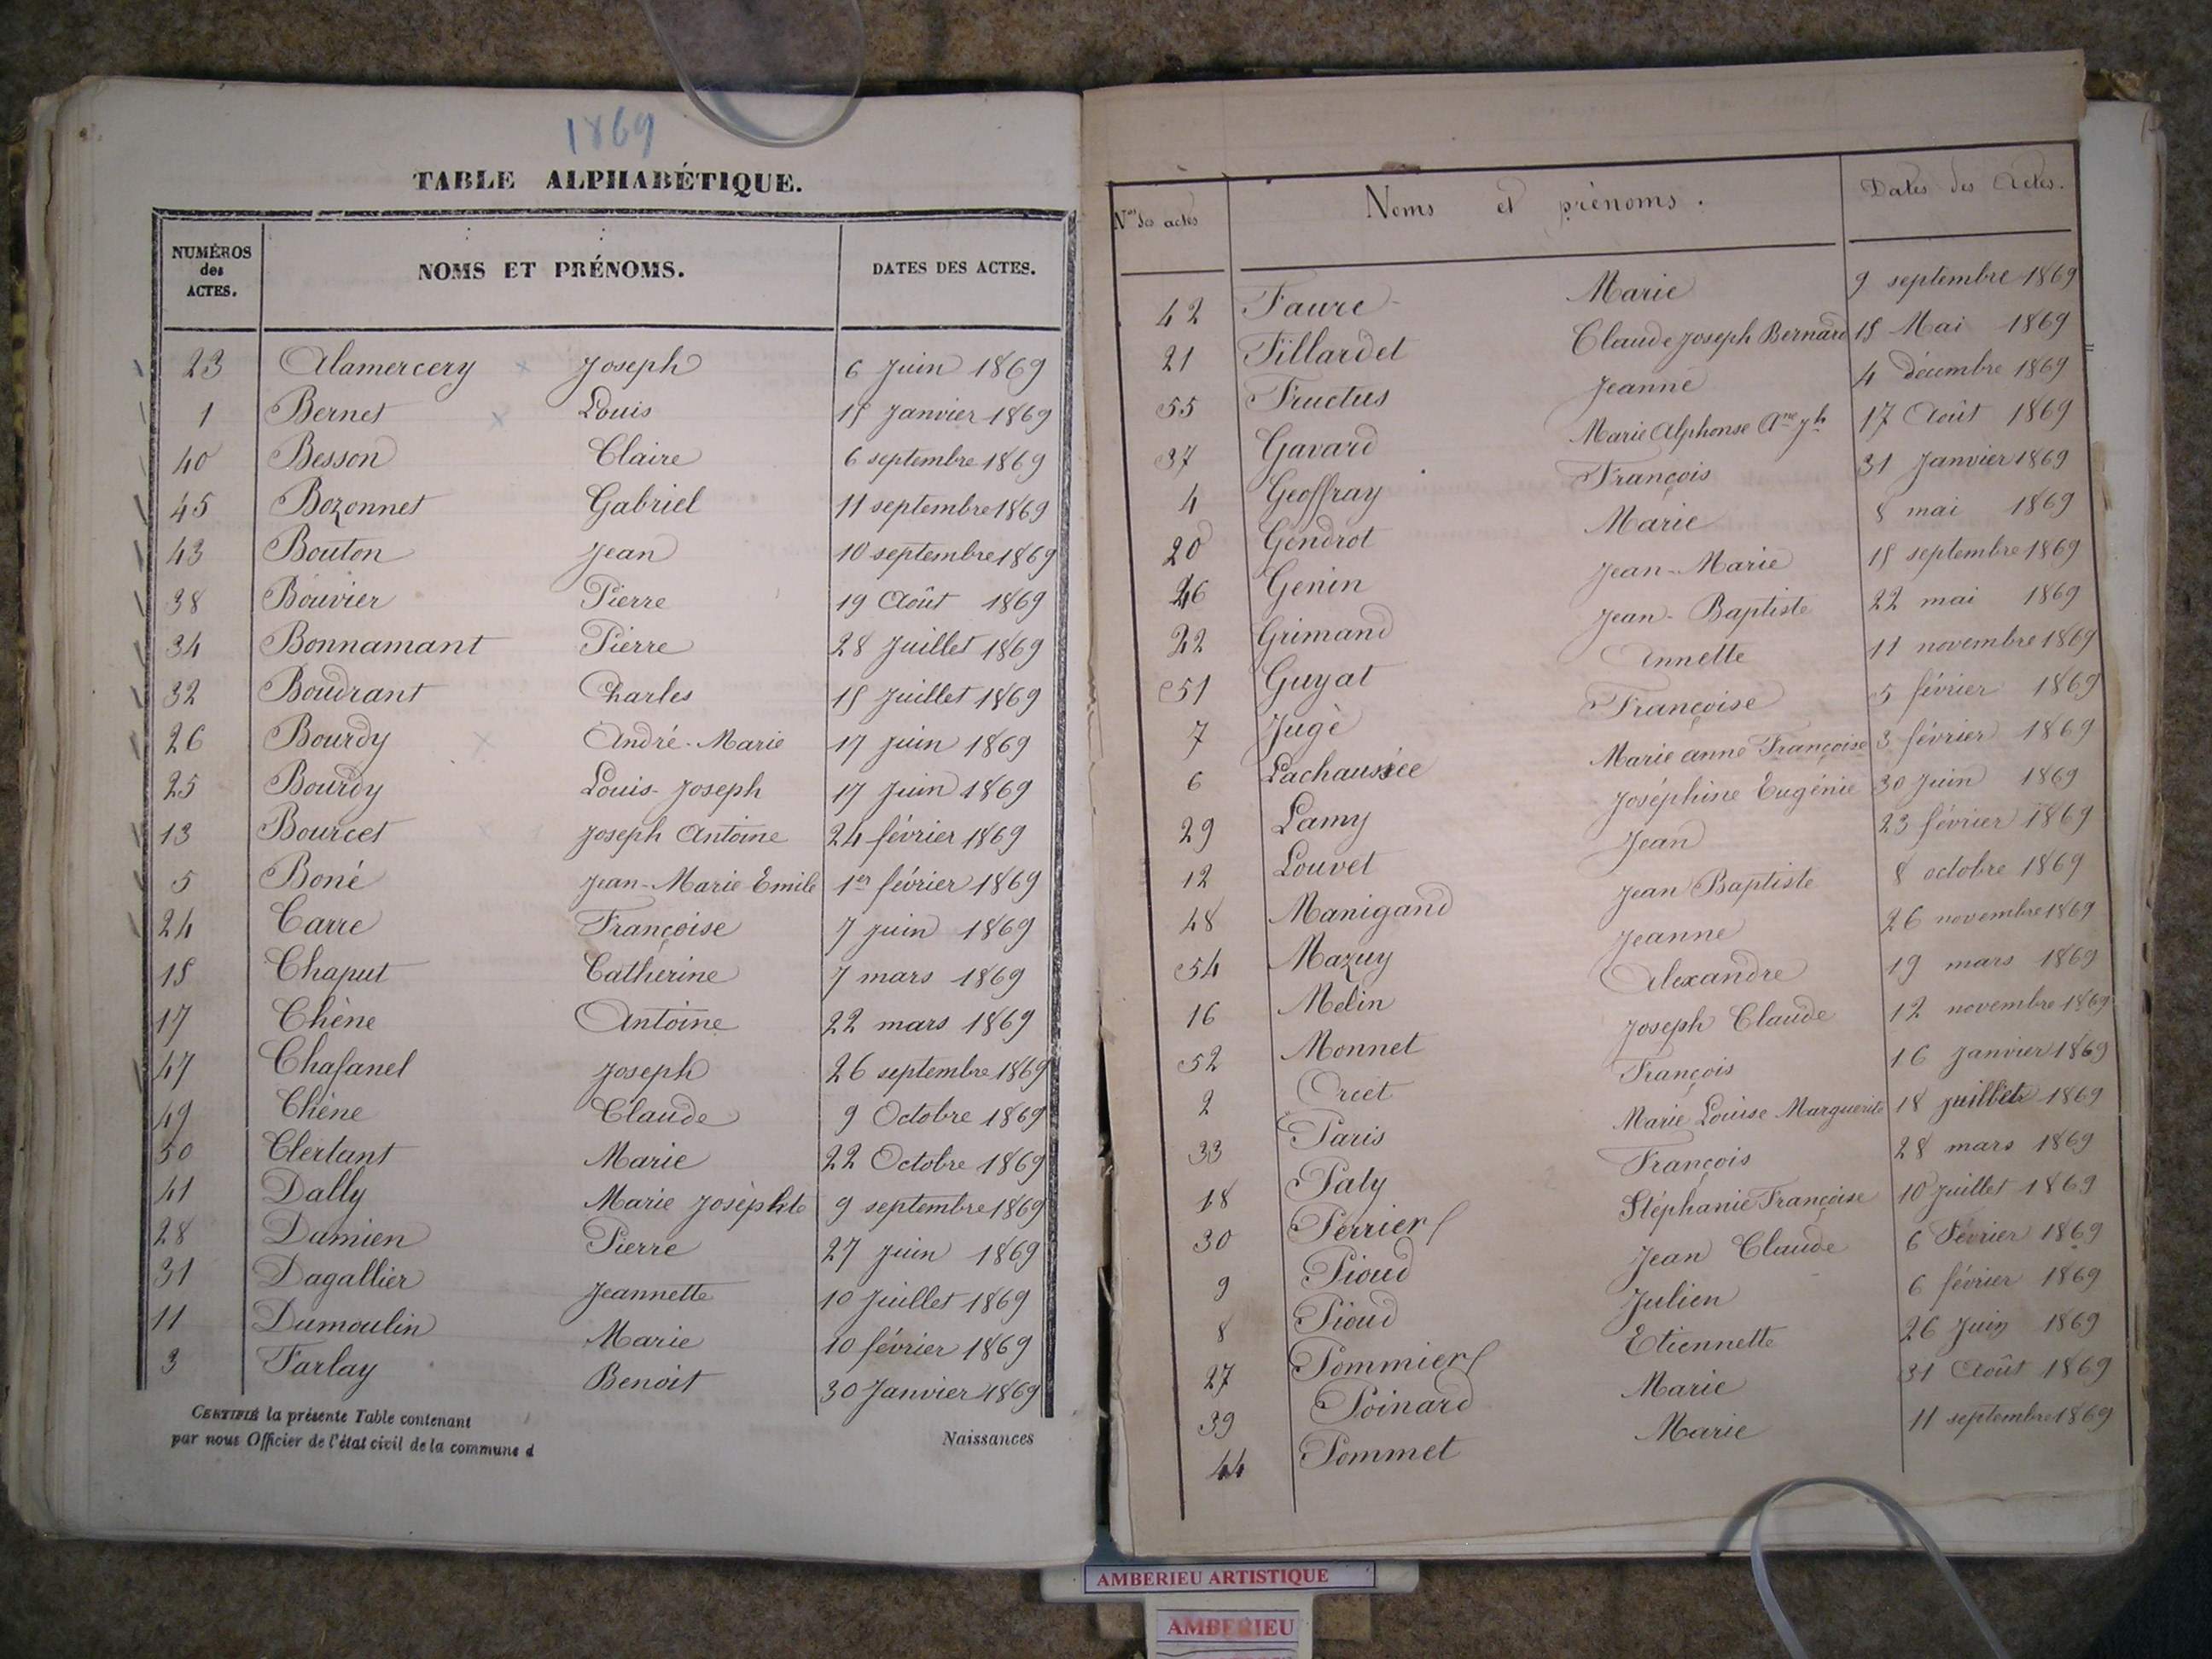 1869
TABLE ALPHABÉTIQUE.
NUMÉROS des ACTES. NOMS ET PRÉNOMS. DATES DES ACTES.
23 Alamercery Joseph 6 Juin 1869
1 Bernet Louis 15 Janvier 1869
40 Besson Claire 6 septembre 1869
45 Bozonnet Gabriel 11 septembre 1869
43 Bouton Jean 10 septembre 1869
38 Bouvier Pierre 19 Août 1869
34 Bonnamant Pierre 28 Juillet 1869
32 Boudrant Charles 15 Juillet 1869
26 Bourdy André-Marie 17 juin 1869
25 Bourdy Louis-Joseph 17 Juin 1869
13 Bourcet Joseph Antoine 24 février 1869
5 Boné Jean-Marie Emile 1er février 1869
24 Carre Françoise 7 juin 1869
15 Chaput Catherine 7 mars 1869
17 Chêne Antoine 22 mars 1869
47 Chafanel Joseph 26 septembre 1869
49 Chêne Claude 9 Octobre 1869
50 Clertant Marie 22 Octobre 1869
41 Dally Marie 9 septembre 1869
28 Damien Pierre 27 Juin 1869
31 Dagallier Jeannette 10 Juillet 1869
11 Dumoulin Marie 10 février 1869
3 Farlay Benoit 30 Janvier 1869
CERTIFIÉ la présente Table contenant
par nous Officier de l'état civil de la commune d
Naissances
Nos des actes Noms et prénoms. Dates des Actes.
42 Faure Marie 9 septembre 1869
21 Fillardet Claude Joseph Bernard 15 Mai 1869
55 Fructus Jeanne 4 décembre 1869
37 Gavard Marie Alphonse Ane Jh 17 Août 1869
4 Geoffray François 31 Janvier 1869
20 Gendrot Marie 8 mai 1869
46 Genin Jean-Marie 15 septembre 1869
22 Grimand Jean-Baptiste 22 mai 1869
51 Guyat Annette 11 novembre 1869
7 Jugé Françoise 5 février 1869
6 Lachaussée Marie anne Françoise 3 février 1869
29 Lamy Joséphine Eugénie 30 Juin 1869
12 Louvet Jean 23 février 1869
48 Manigand Jean Baptiste 8 octobre 1869
54 Mazuy Jeanne 26 novembre 1869
16 Melin Alexandre 19 mars 1869
52 Monnet Joseph Claude 12 novembre 1869
2 Orcet François 16 Janvier 1869
33 Paris Marie Louise Marguerite 18 juillet 1869
18 Paty François 28 mars 1869
30 Perrier Stéphanie Françoise 10 Juillet 1869
9 Pioud Jean Claude 6 Février 1869
8 Pioud Julien 6 février 1869
27 Pommier Etiennette 26 Juin 1869
39 Poinard Marie 31 Août 1869
44 Pommet Marie 11 septembre 1869
AMBERIEU ARTISTIQUE
AMBERIEU